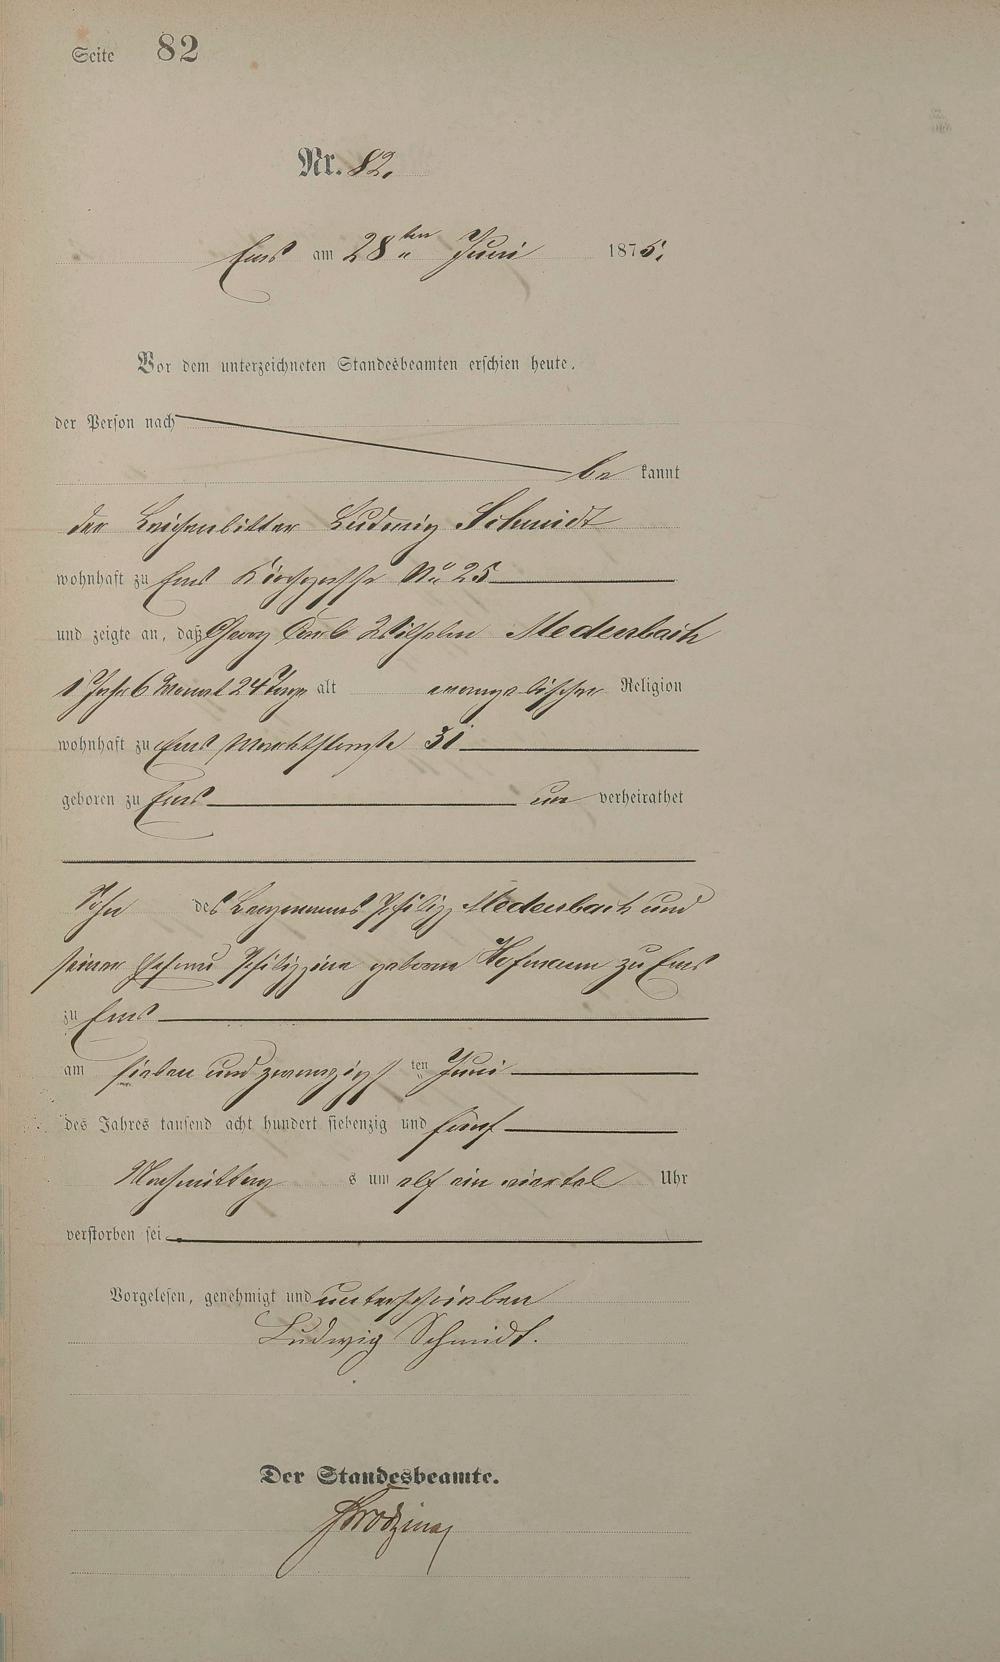 Seite 82
Nr. 82.
Ems am 28ten Juni 1875.
Vor dem unterzeichneten Standesbeamten erschien heute,
der Person nach
be kannt
der Leichenbitter Ludwig Schmidt
wohnhaft zu Ems Kirchgasse No 25
und zeigte an, daß Georg Carl Wilhelm Medenbach
1 Jahr 6 Monat 24 Tage alt evangelischer Religion
wohnhaft zu Ems Marktstraße 31
geboren zu Ems un verheirathet
Sohn des Bergmanns Philipp Medenbach und
seiner Ehefrau Philippine geborne Hofmann zu Ems
zu Ems
am sieben und zwanzigsten Juni
des Jahres tausend acht hundert siebenzig und fünf
Nachmittag s um elf ein viertel Uhr
verstorben sei
Vorgelesen, genehmigt und unterschrieben
Ludwig Schmidt.
Der Standesbeamte.